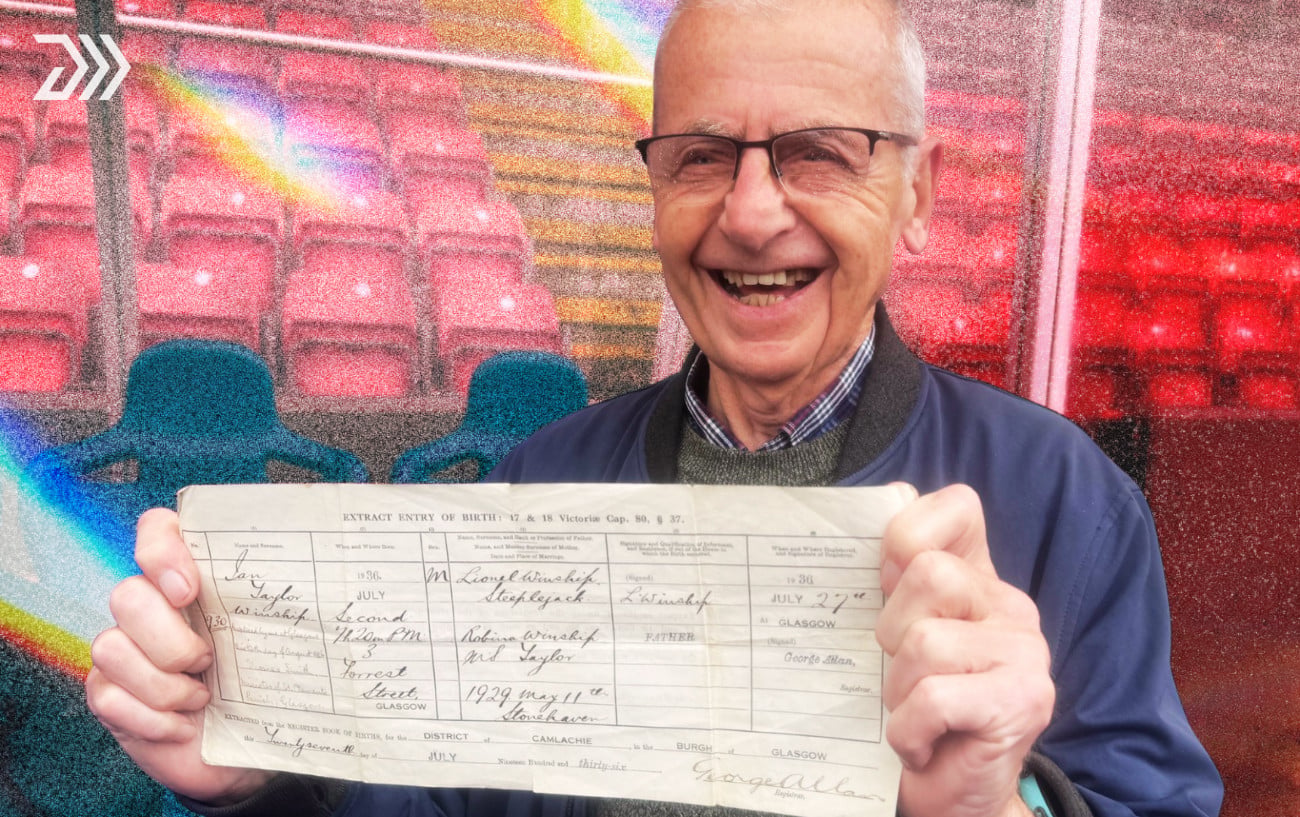 EXTRACT ENTRY OF BIRTH: 17 & 18 Victoriæ Cap. 80, § 37.
(1) (2) (3) (4) (5) (6)
No. Name and Surname. When and Where Born. Sex. Name, Surname, and Rank or Profession of Father. Name, and Maiden Surname of Mother. Date and Place of Marriage. Signature and Qualification of Informant, and Residence, if out of the House in which the Birth occurred. When and Where Registered, and Signature of Registrar.
Ian 1936 M Lionel Winship (Signed) 1936
Taylor JULY Steeplejack L. Winship JULY 27th
Winship Second At GLASGOW
930 4h. 20m PM Robina Winship FATHER (Signed)
3 MS Taylor George Allan,
Forrest Registrar.
Street, 1929 May 11th
GLASGOW Stonehaven
EXTRACTED from the REGISTER BOOK OF BIRTHS, for the DISTRICT of CAMLACHIE in the BURGH of GLASGOW
this Twentyseventh day of JULY Nineteen Hundred and thirty-six
George Allan
Registrar.